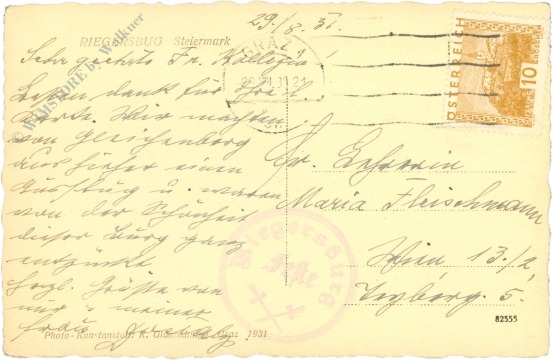 29/8 31.
RIEGERSBURG Steiermark
© WIMSTORE by Walkner
GRAZ 1
ÖSTERREICH
10 GROSCHEN
Sehr geehrte Fr. Kollegin!
Besten Dank für Ihre
Karte. Wir machten
von Gleichenberg
aus hieher einen
Ausflug u. waren
von der Schönheit
dieser Burg ganz
entzückt.
Herzl. Grüße von
mir u. meiner
Frau
Fr. Lehrerin
Maria Fleischmann
Wien 13./2,
5.
Riegersburg
82555
Photo-Kunstanstalt: K. Graz 1931